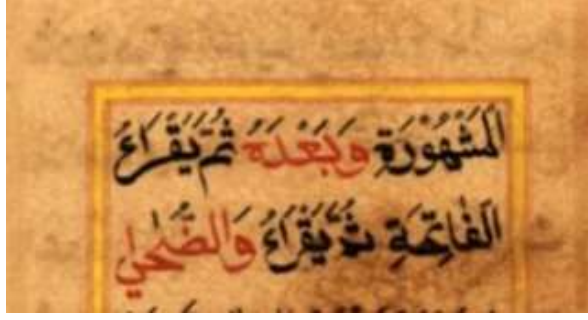 الْمَشْهُوْرَةِ وَبَعْدَهُ ثُمَّ يَقْرَاءُ
الْفَاتِحَةِ ثُمَّ يَقْرَاءُ وَالضُّحٰى